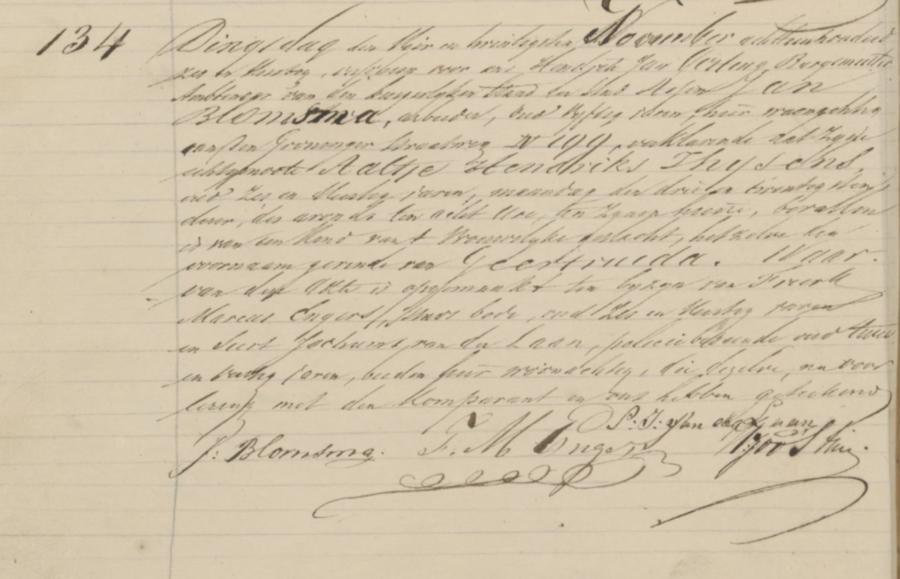 134 Dingsdag den Vier en twintigsten November achttienhonderd
zes en Veertig, verscheen voor ons Hendrik Jan Burgemeester
Ambtenaar van den burgerlijken Stand der Stad Assen Jan
Blomsma, arbeider, oud Vijftig jaren, hier woonachtig
aan den Groninger Straatweg N 199, verklarende dat Zijne
echtgenoote Aaltje Hendriks Thysens,
oud Zes en Veertig jaren, maandag den drie en twintigsten
dezer, des avonds ten acht Ure, ten Zijnen huize, bevallen
is van een Kind van t Vrouwelijke geslacht, hetzelve den
voornaam gevende van Geertruida. Waar-
van deze Akte is opgemaakt ten bijzijn van Freerk
Marcus Engers, bode, oud Zes en Veertig jaren
en Jochums van der Laan, policiebediende oud twee
en dertig jaren, beiden hier woonachtig, die dezelve, na voor
lezing met den Comparant en ons hebben geteekend
J: Blomsma. F. M Engers van der Laan